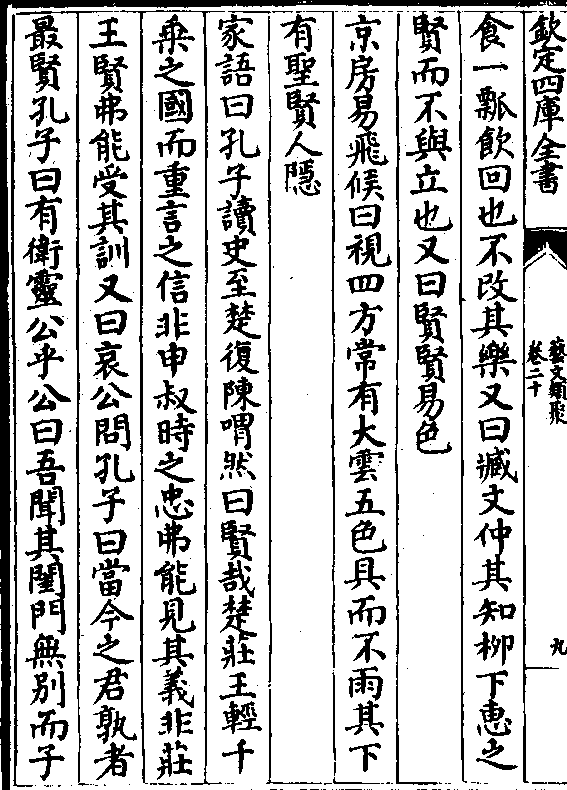 欽定四庫全書
藝文類聚
卷二十
九
食一瓢飲回也不改其樂又曰臧文仲其知柳下惠之
賢而不與立也又曰賢賢易色
京房易飛候曰視四方常有大雲五色具而不雨其下
有聖賢人隱
家語曰孔子讀史至楚復陳喟然曰賢哉楚莊王輕千
乗之國而重言之信非申叔時之忠弗能見其義非莊
王賢弗能受其訓又曰哀公問孔子曰當今之君孰者
最賢孔子曰有衛靈公乎公曰吾聞其閨門無別而子